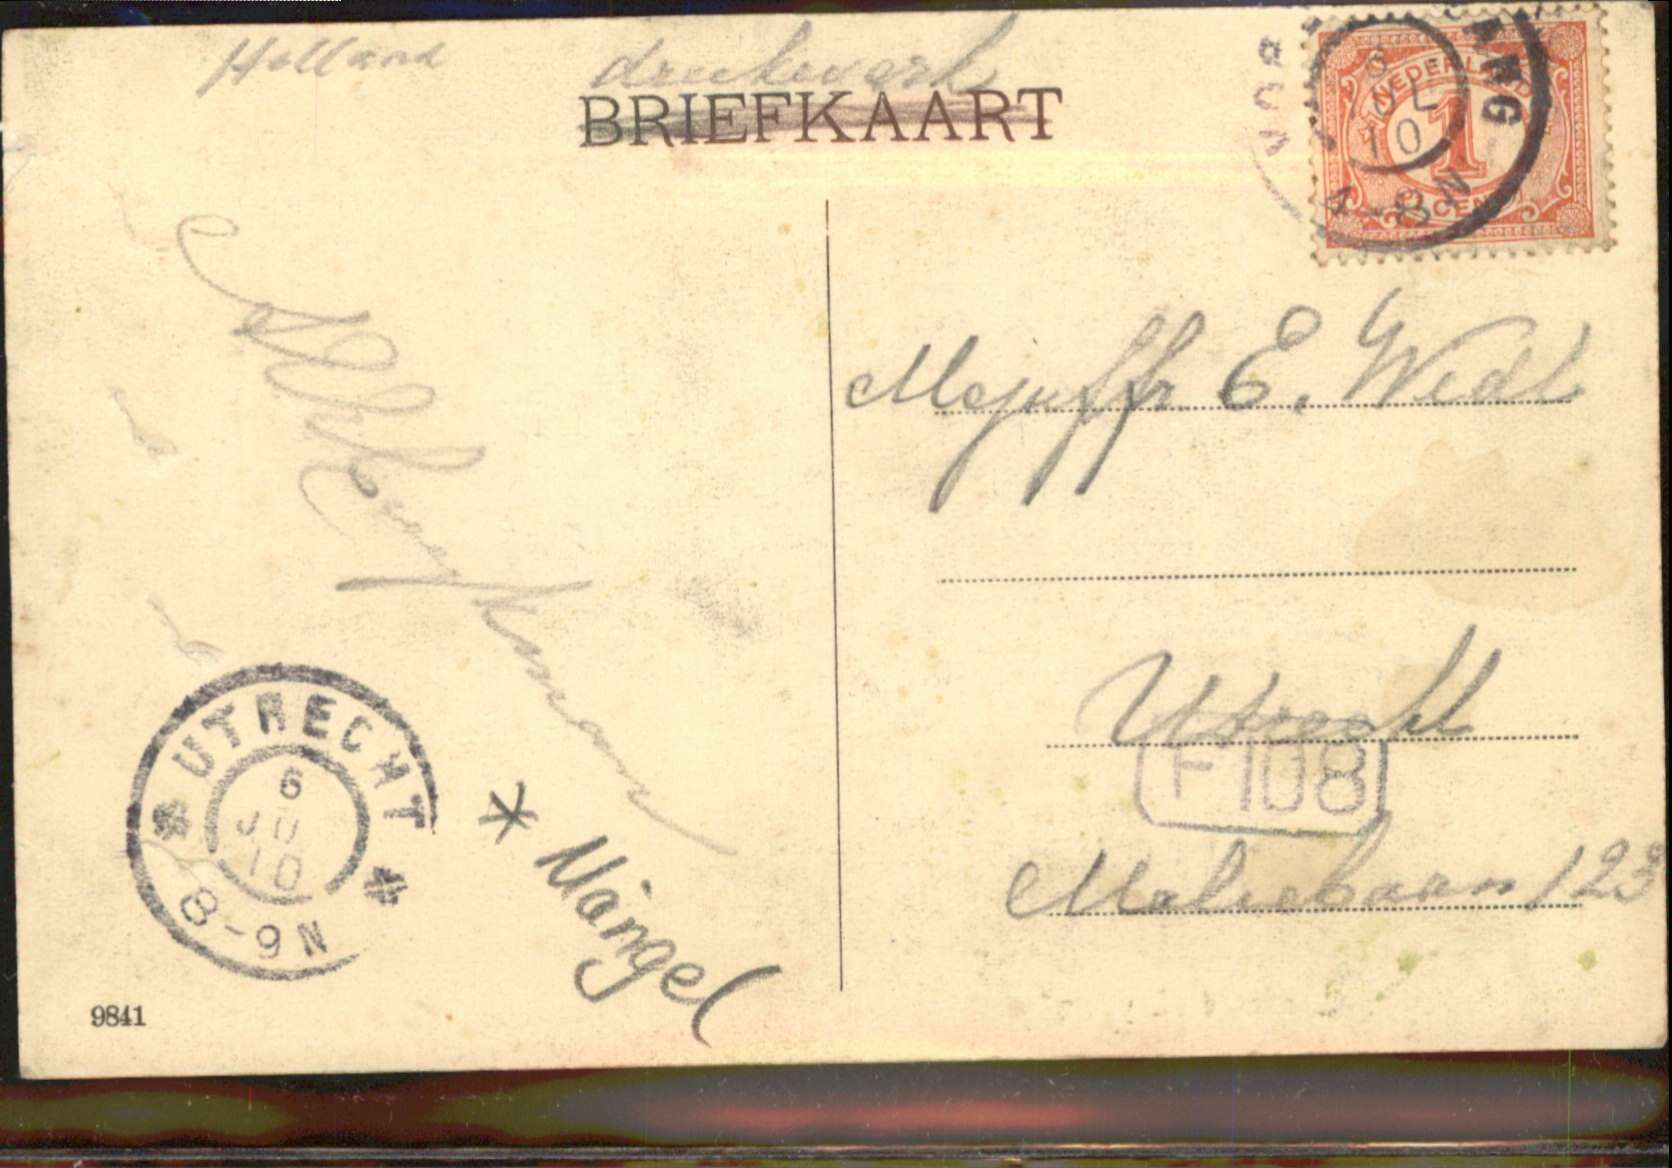 Holland drukwerk
BRIEFKAART
6
JUL
10
4-8N
NEDERLAND
1
CENT
Mejuffr. E. Wedt
Utrecht
F108
Maliebaan 123
UTRECHT
6
JU
10
8-9N
* Mängel
9841